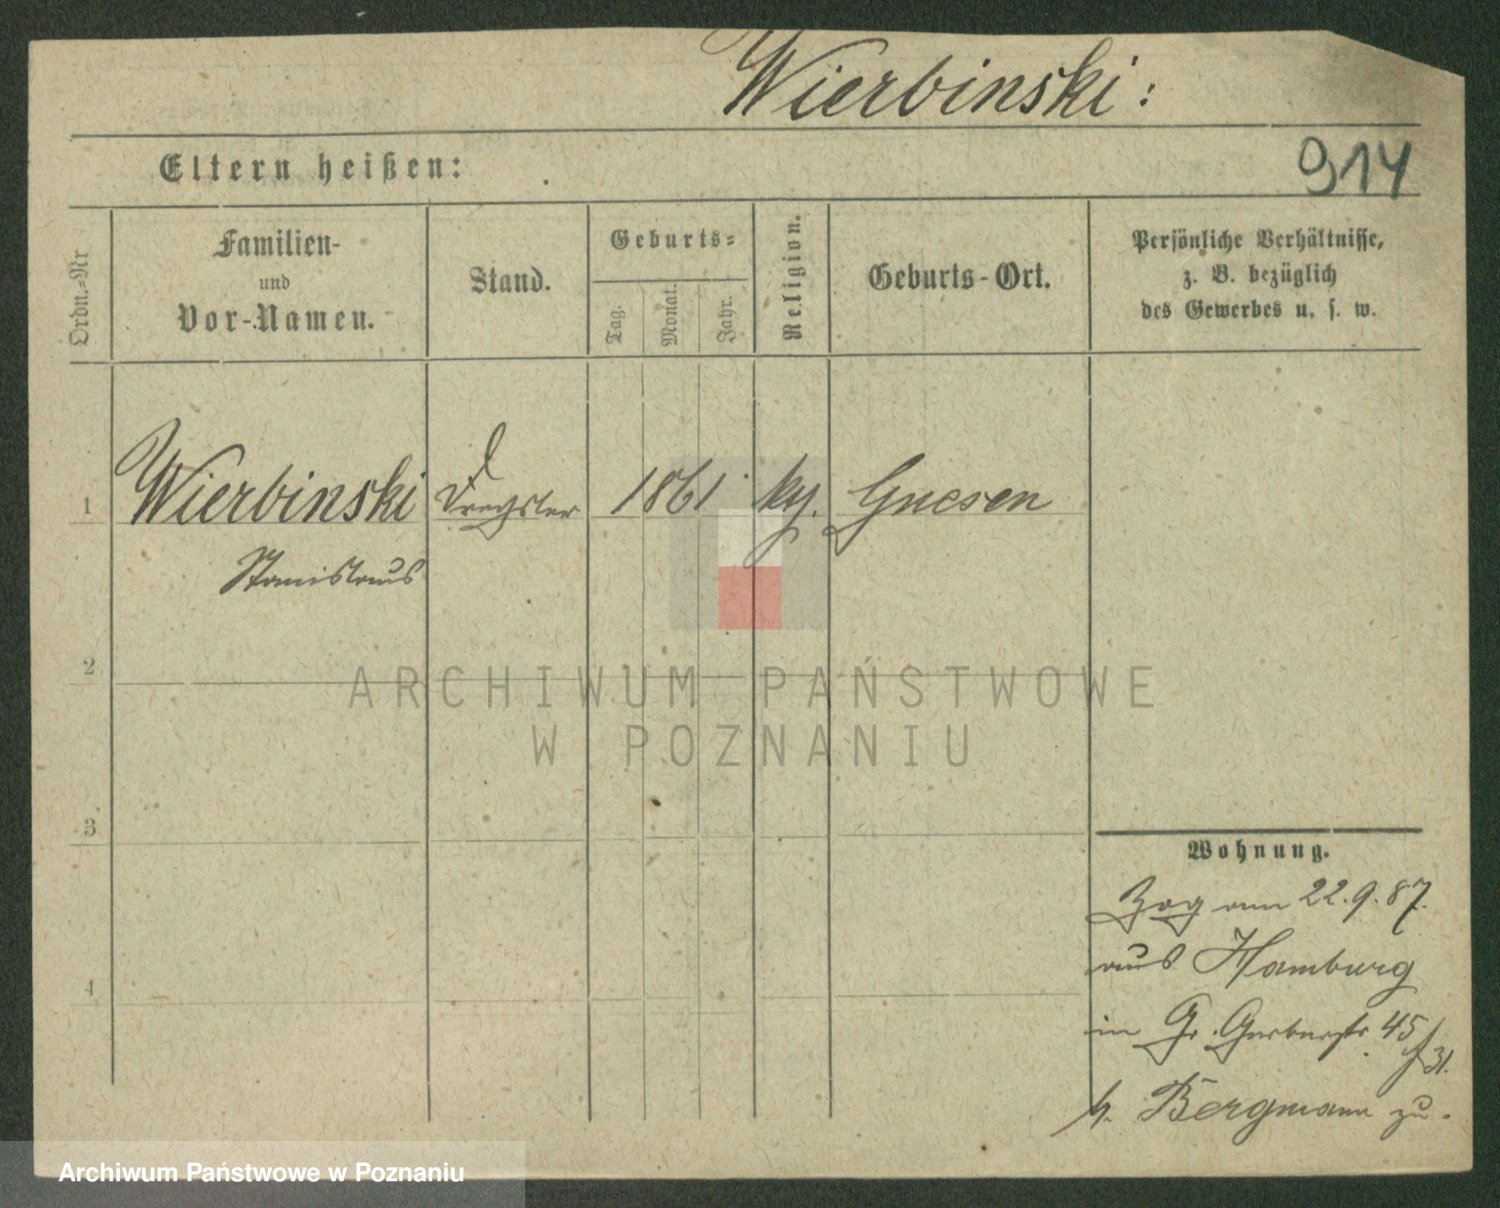 Wierbinski:
Eltern heißen:
914
Ordn.-Nr
Familien-
und
Vor-Namen.
Stand.
Geburts-
Tag.
Monat.
Jahr.
Religion.
Geburts-Ort.
Persönliche Verhältnisse,
z. B. bezüglich
des Gewerbes u. s. w.
1 Wierbinski 1861 Gnesen
Stanislaus
2
3
4
Wohnung.
Zog am 22.9.87.
aus Hamburg
in Gr. Gerberstr 45
31.
b. Bergmann zu.
ARCHIWUM PAŃSTWOWE
W POZNANIU
Archiwum Państwowe w Poznaniu